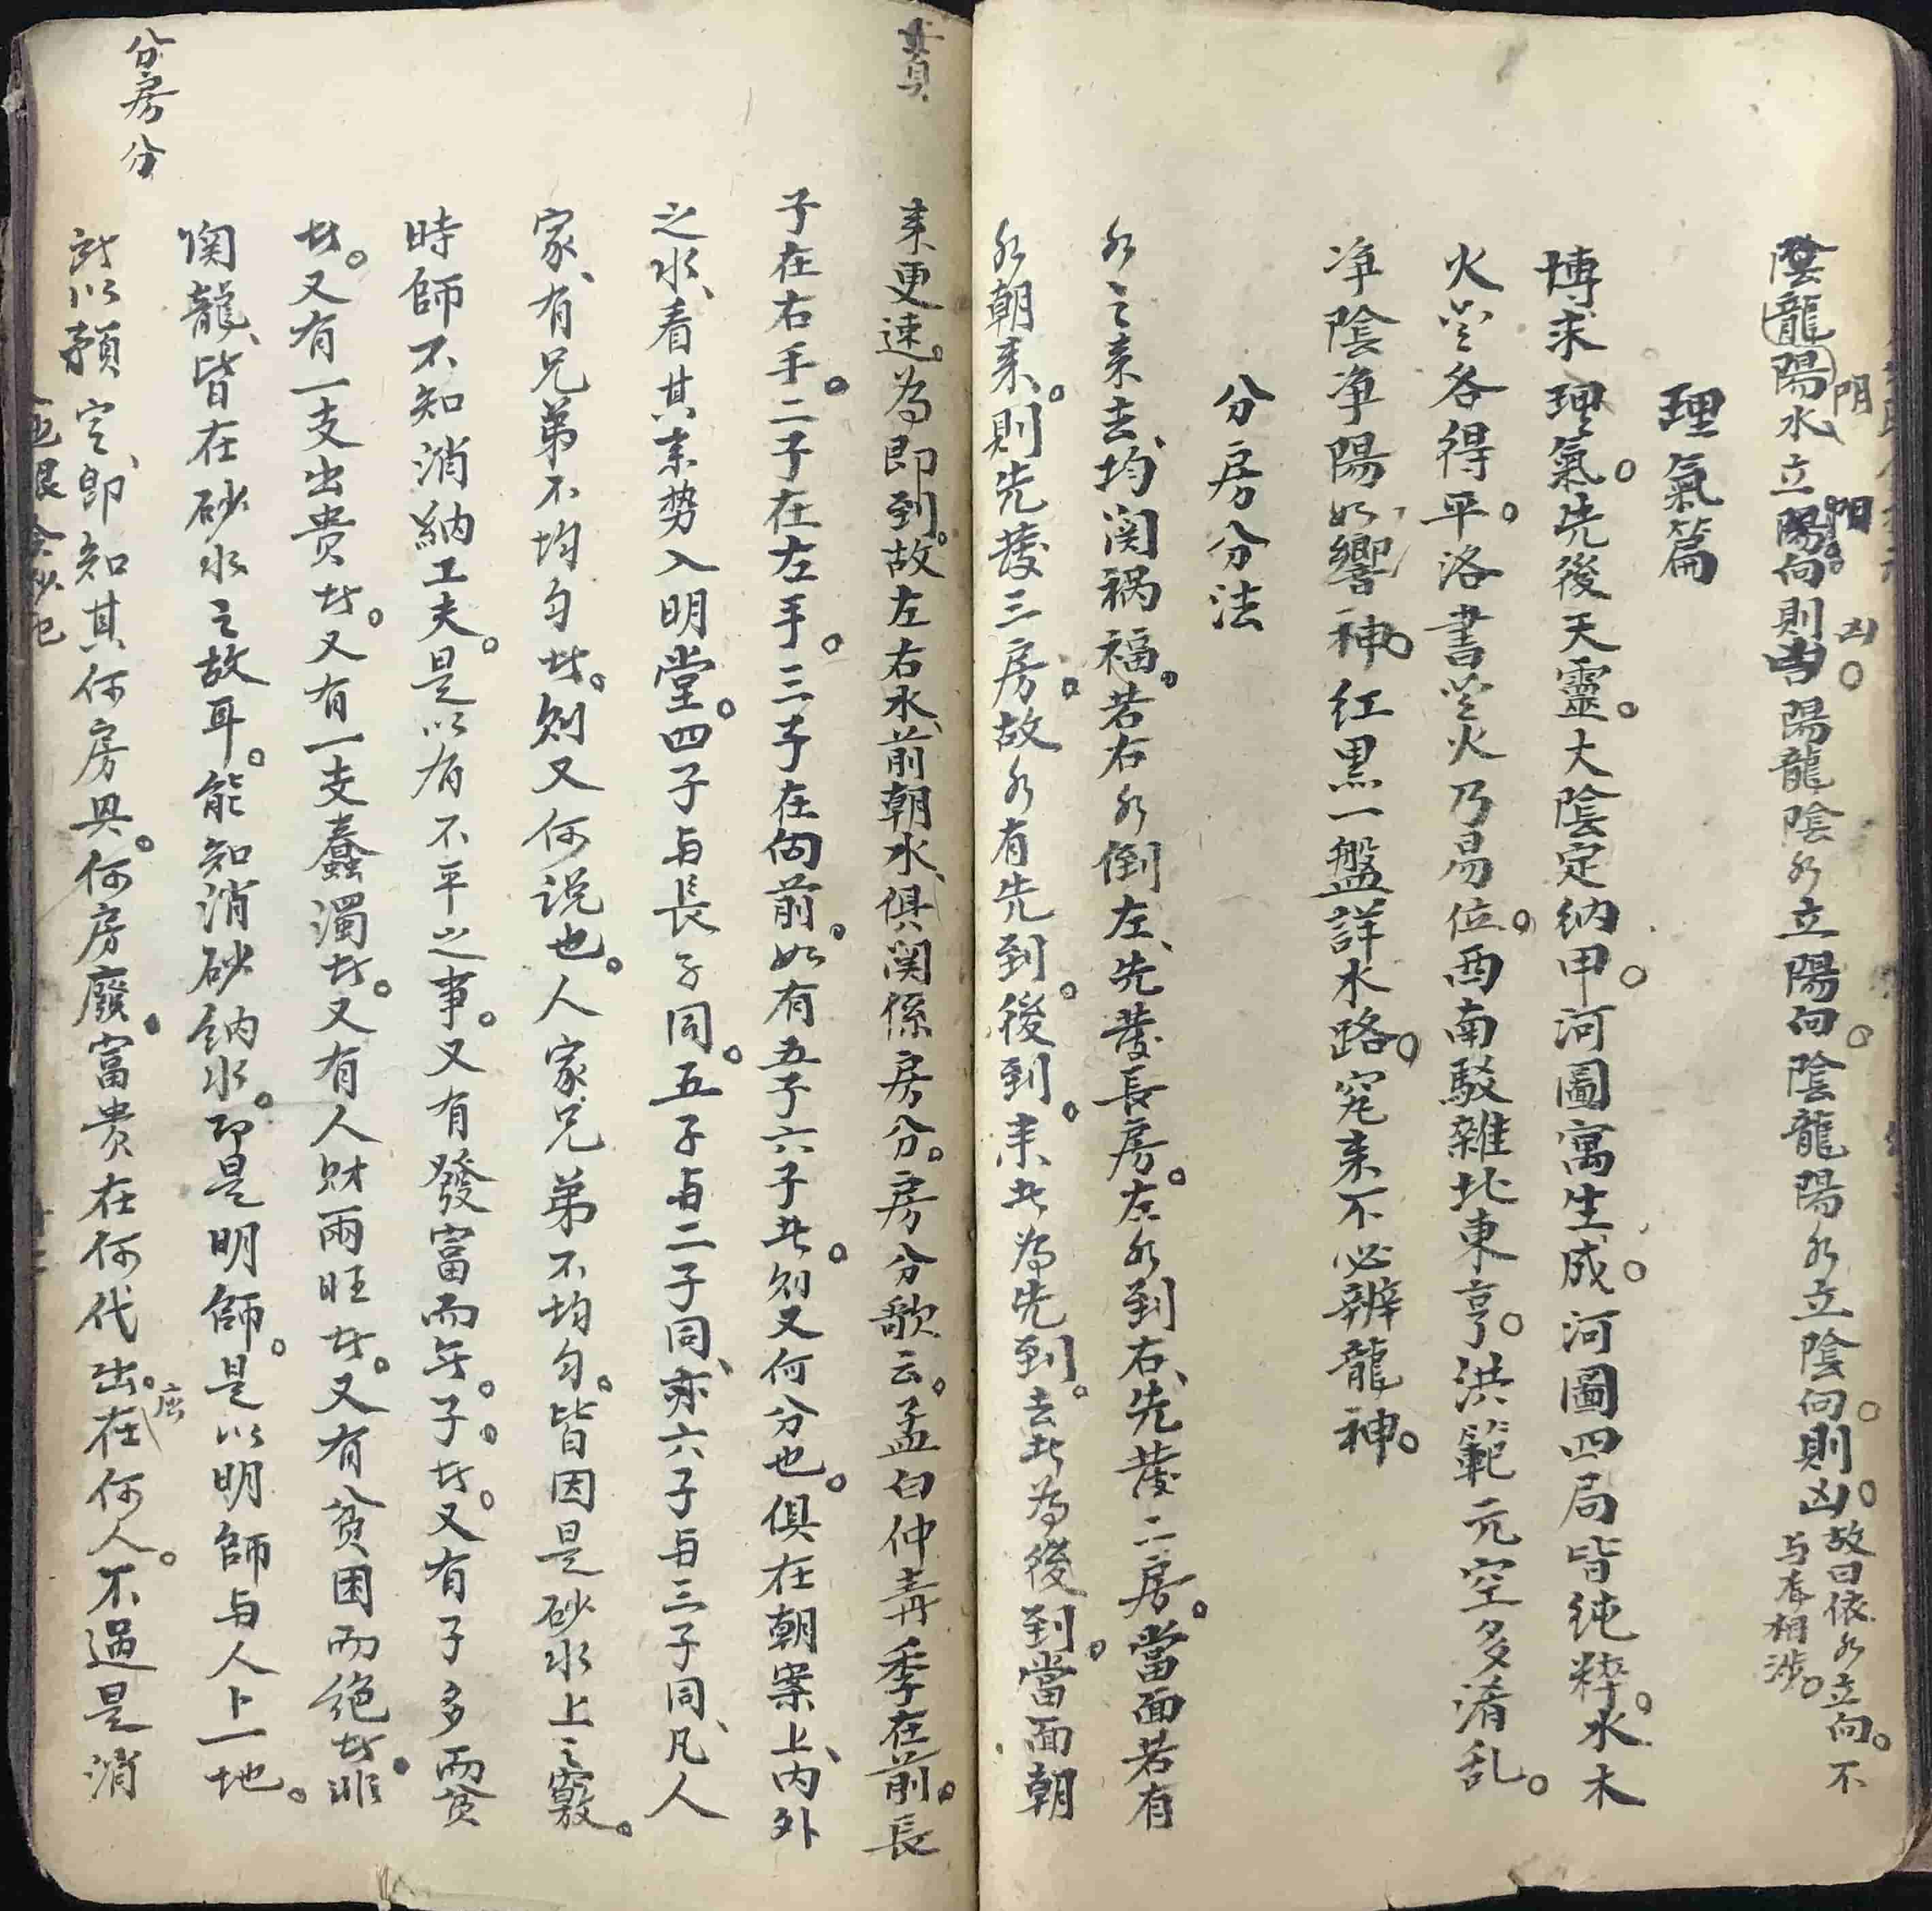 陰龍陽水立陽向則吉陽龍陰水立陽向。陰龍陽水立陰向。則凶。故曰依水立向。不
与龙相涉。
阴
阳
凶
理氣篇
博求理氣。先後天靈。大陰定納甲。河圖寓生成。河圖四局皆純粹。水木
火金各得平。洛書金火乃易位。酉南駁雜北東亨。洪範元空多淆乱。
净陰净陽如響神。红黑一盤詳水路。究来不必辨龍神。
分房分法
水之来去、均関祸福。若右水倒左、先發長房。左水到右、先發二房。當面若有
水朝来。則先發三房。故水有先到。後到。来者為先到。去者為後到。當面朝
来更速。為即到。故左右水、前朝水、俱関係房分。房分歌云。孟白仲青季在前。長
子在右手。二子在左手。三子在向前。如有五子六子者。则又何分也。俱在朝案上、内外
之水、看其来势入明堂。四子与長子同。五子与二子同、亦六子与三子同、凡人
家、有兄弟不均匀者。则又何说也。人家兄弟不均匀。皆因是砂水上之竅。
時師不知消納工夫。是以有不平之事。又有發富而无。子。者。又有子多而贫
者。又有一支出贵者。又有一支蠢濁者。又有人财兩旺者。又有贫困而绝者。非
関龍、皆在砂水之故耳。能知消砂納水。即是明師。是以明師与人上一地。
預定、即知其何房興。何房廢。富贵在何代出。在何人。不過是消
应
分房分